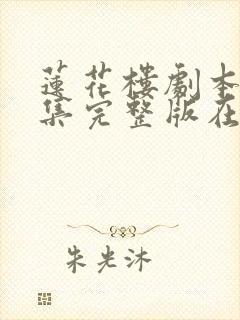 蓮花樓劇本
集完整版在
朱光沐